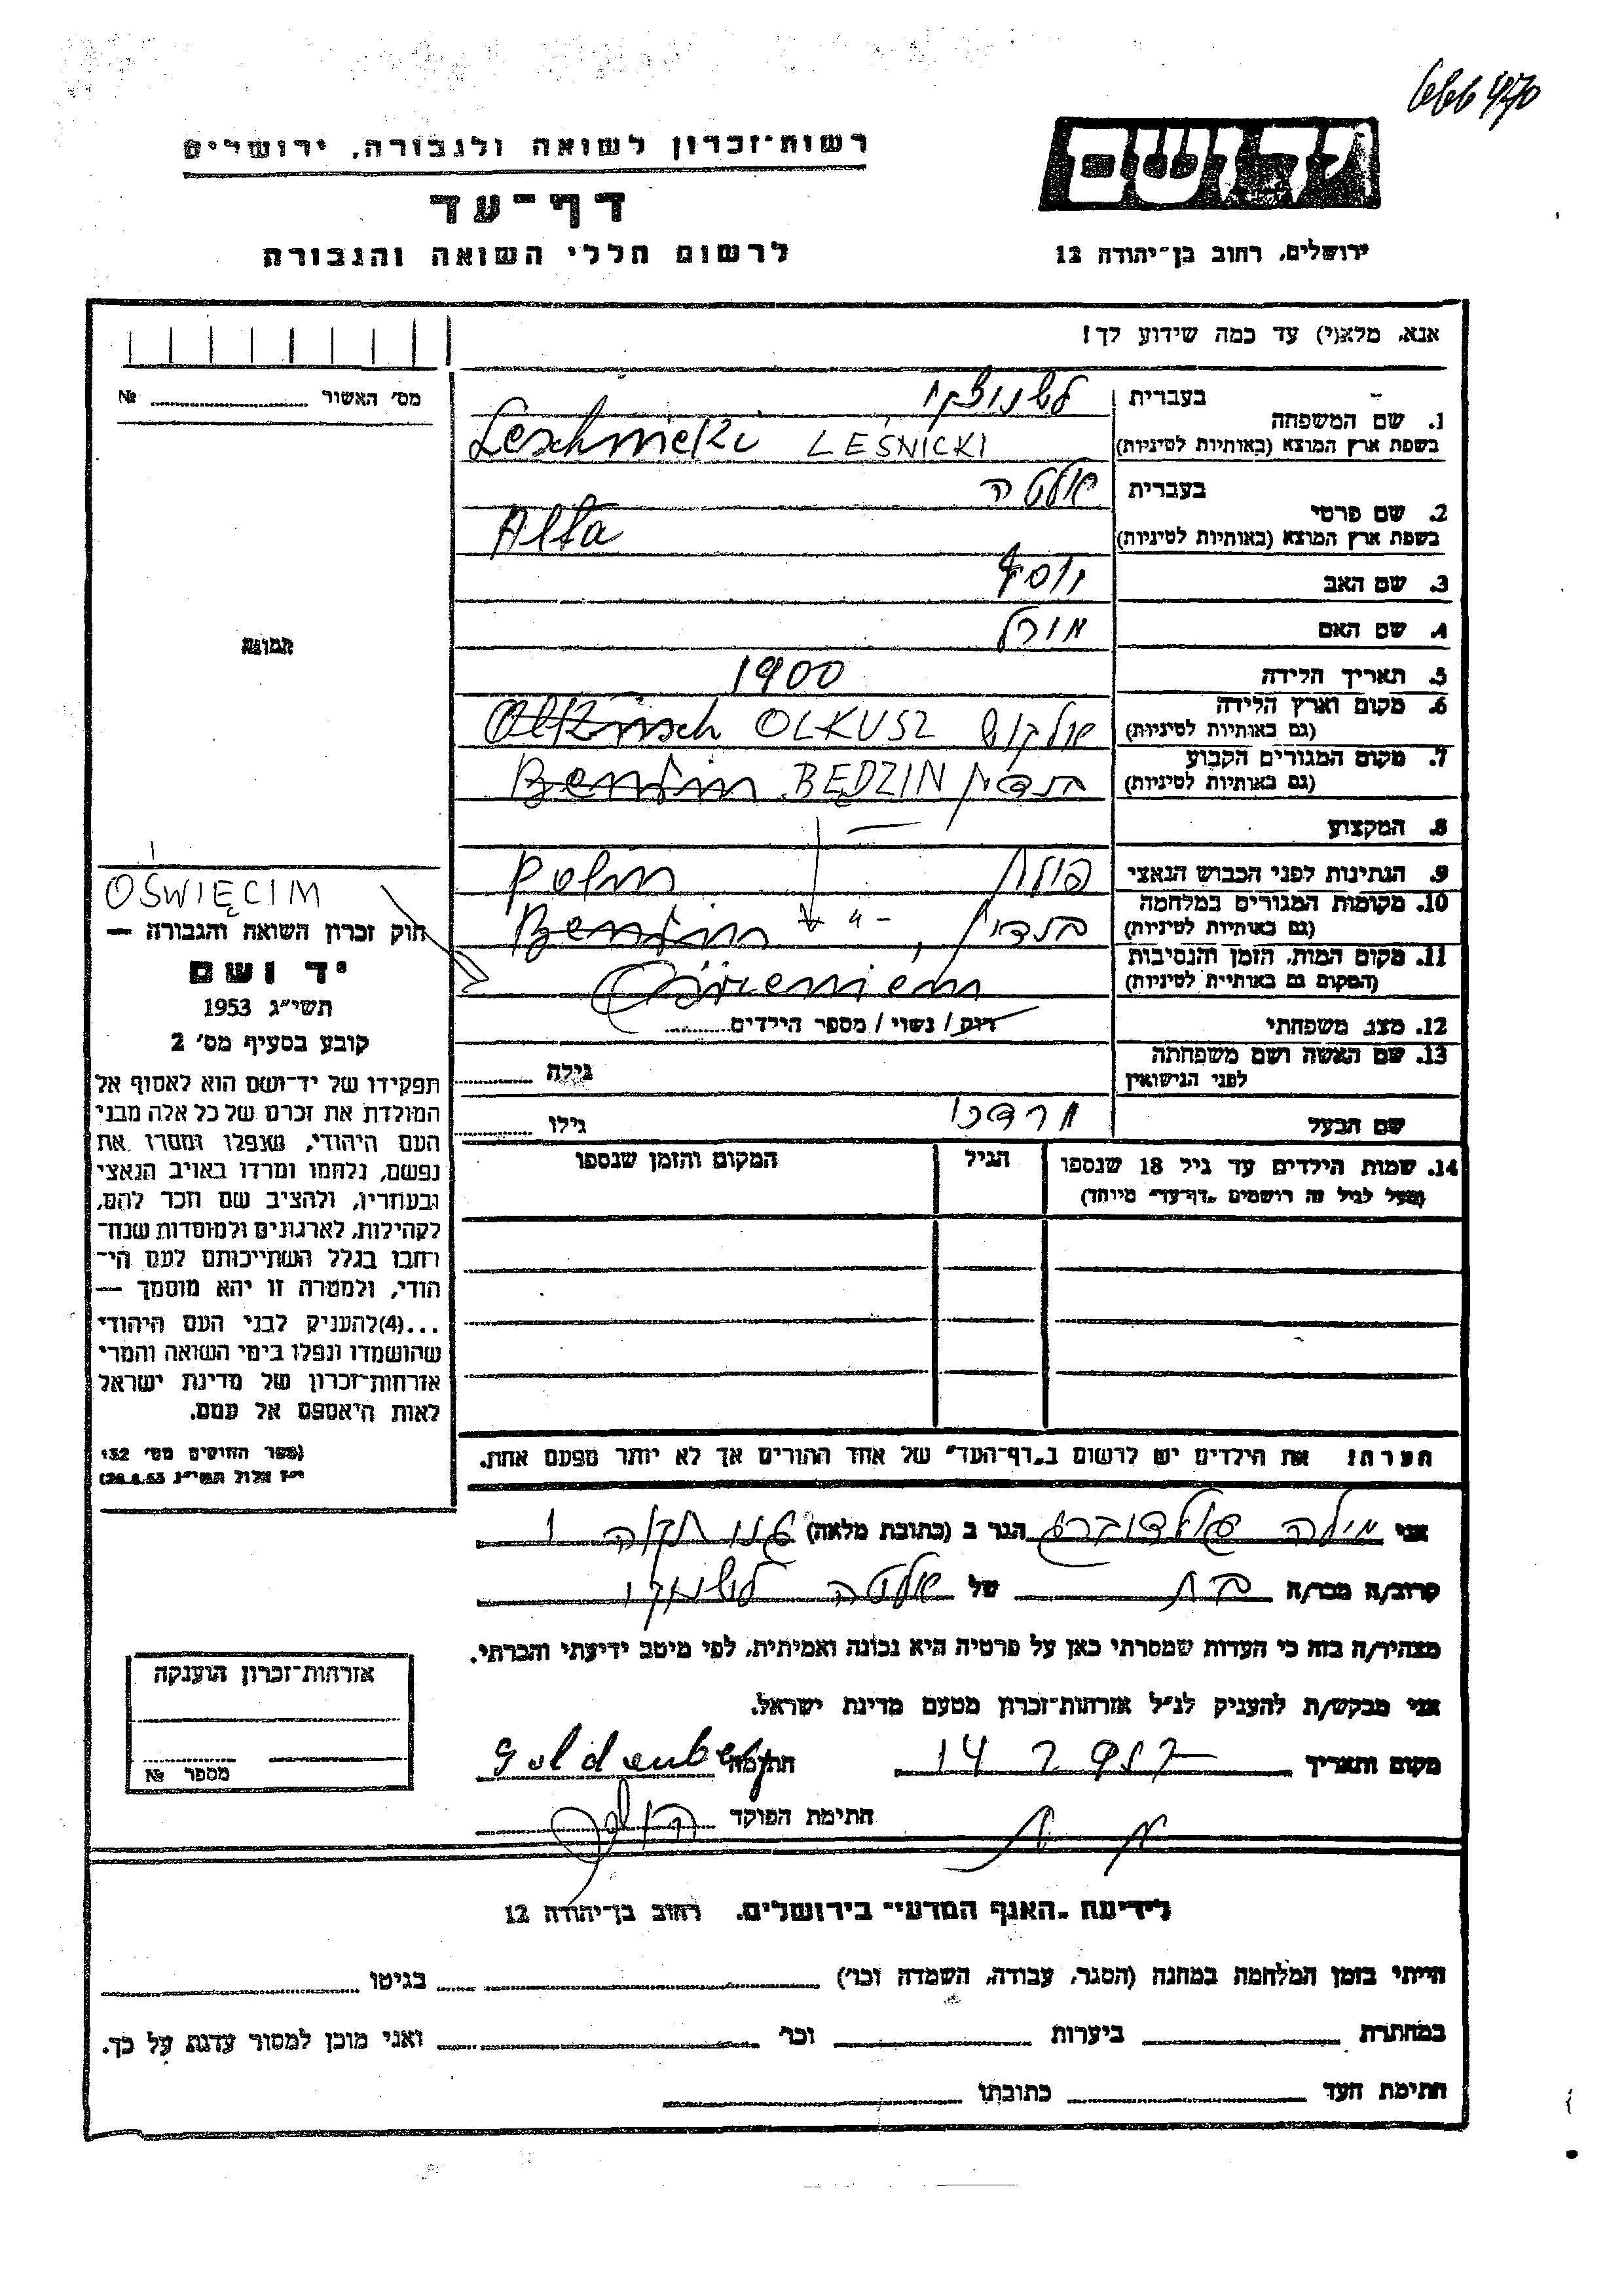 666 470
רשות־זכרון לשואה ולגבורה, ירושלים
יד ושם
דף־עד
לרשום חללי השואה והגבורה
ירושלים, רחוב בן־יהודה 12
אנא, מלא(י) עד כמה שידוע לך!
מס' האשור № ........
תמונה
בעברית
1. שם המשפחה
בשפת ארץ המוצא (באותיות לטיניות)
Leschnicki LEŚNICKI
בעברית אלטה
2. שם פרטי
בשפת ארץ המוצא (באותיות לטיניות)
Alta
3. שם האב יוסף
4. שם האם
5. תאריך הלידה 1900
6. מקום וארץ הלידה
(גם באותיות לטיניות)
OLKUSZ אולקוש
7. מקום המגורים הקבוע
(גם באותיות לטיניות)
Bendzin BĘDZIN בנדין
8. המקצוע —
9. הנתינות לפני הכבוש הנאצי
פולין Polin
10. מקומות המגורים במלחמה
(גם באותיות לטיניות)
בנדין, Bendzin - " -
11. מקום המות, הזמן והנסיבות
(המקום גם באותיות לטיניות)
OŚWIĘCIM
12. מצב משפחתי
רווק / נשוי / מספר הילדים........
13. שם האשה ושם משפחתה
לפני הנישואין
גילה ........
שם הבעל מרדכי גילו ........
14. שמות הילדים עד גיל 18 שנספו
(מעל לגיל זה רושמים „דף־עד” מיוחד)
הגיל
המקום והזמן שנספו
חוק זכרון השואה והגבורה —
יד ושם
תשי"ג 1953
קובע בסעיף מס' 2
תפקידו של יד־ושם הוא לאסוף אל
המולדת את זכרם של כל אלה מבני
העם היהודי, שנפלו ומסרו את
נפשם, נלחמו ומרדו באויב הנאצי
ובעוזריו, ולהציב שם וזכר להם,
לקהילות, לארגונים ולמוסדות שנח־
רבו בגלל השתייכותם לעם הי־
הודי, ולמטרה זו יהא מוסמך —
...(4)להעניק לבני העם היהודי
שהושמדו ונפלו בימי השואה והמרי
אזרחות־זכרון של מדינת ישראל
לאות היאספם אל עמם.
(ספר החוקים מס' 132
י"ז אלול תשי"ג 28.8.53)
הערה! את הילדים יש לרשום ב„דף־העד” של אחד ההורים אך לא יותר מפעם אחת.
אני מילה גולדנברג הגר ב (כתובת מלאה)
קרוב/ה מכר/ה בת של אלטה
מצהיר/ה בזה כי העדות שמסרתי כאן על פרטיה היא נכונה ואמיתית, לפי מיטב ידיעתי והכרתי.
אני מבקש/ת להעניק לנ"ל אזרחות־זכרון מטעם מדינת ישראל.
מקום ותאריך 14 2 957 חתימה Goldenberg
חתימת הפוקד
אזרחות־זכרון הוענקה
מספר №
לידיעת „האגף המדעי” בירושלים. רחוב בן־יהודה 12
הייתי בזמן המלחמה במחנה (הסגר, עבודה, השמדה וכו') ........ בגיטו ........
במחתרת ........ ביערות ........ וכו' ........ ואני מוכן למסור עדות על כך.
חתימת העד ........ כתובתו ........